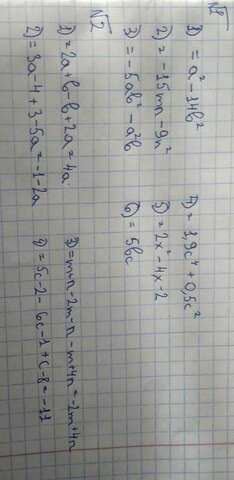 №1
1) = a² - 14b²
2) = -15mn - 9n²
3) = -5ab² - a²b
4) = 1,9c⁴ + 0,5c²
5) = 2x² - 4x - 2
6) = 5bc
№2
1) = 2a + b - b + 2a = 4a
2) = 3a - 4 + 3 - 5a = -1 - 2a
3) = m + n - 2m - n - m + 4n = -2m + 4n
4) = 5c - 2 - 6c - 1 + c - 8 = -11